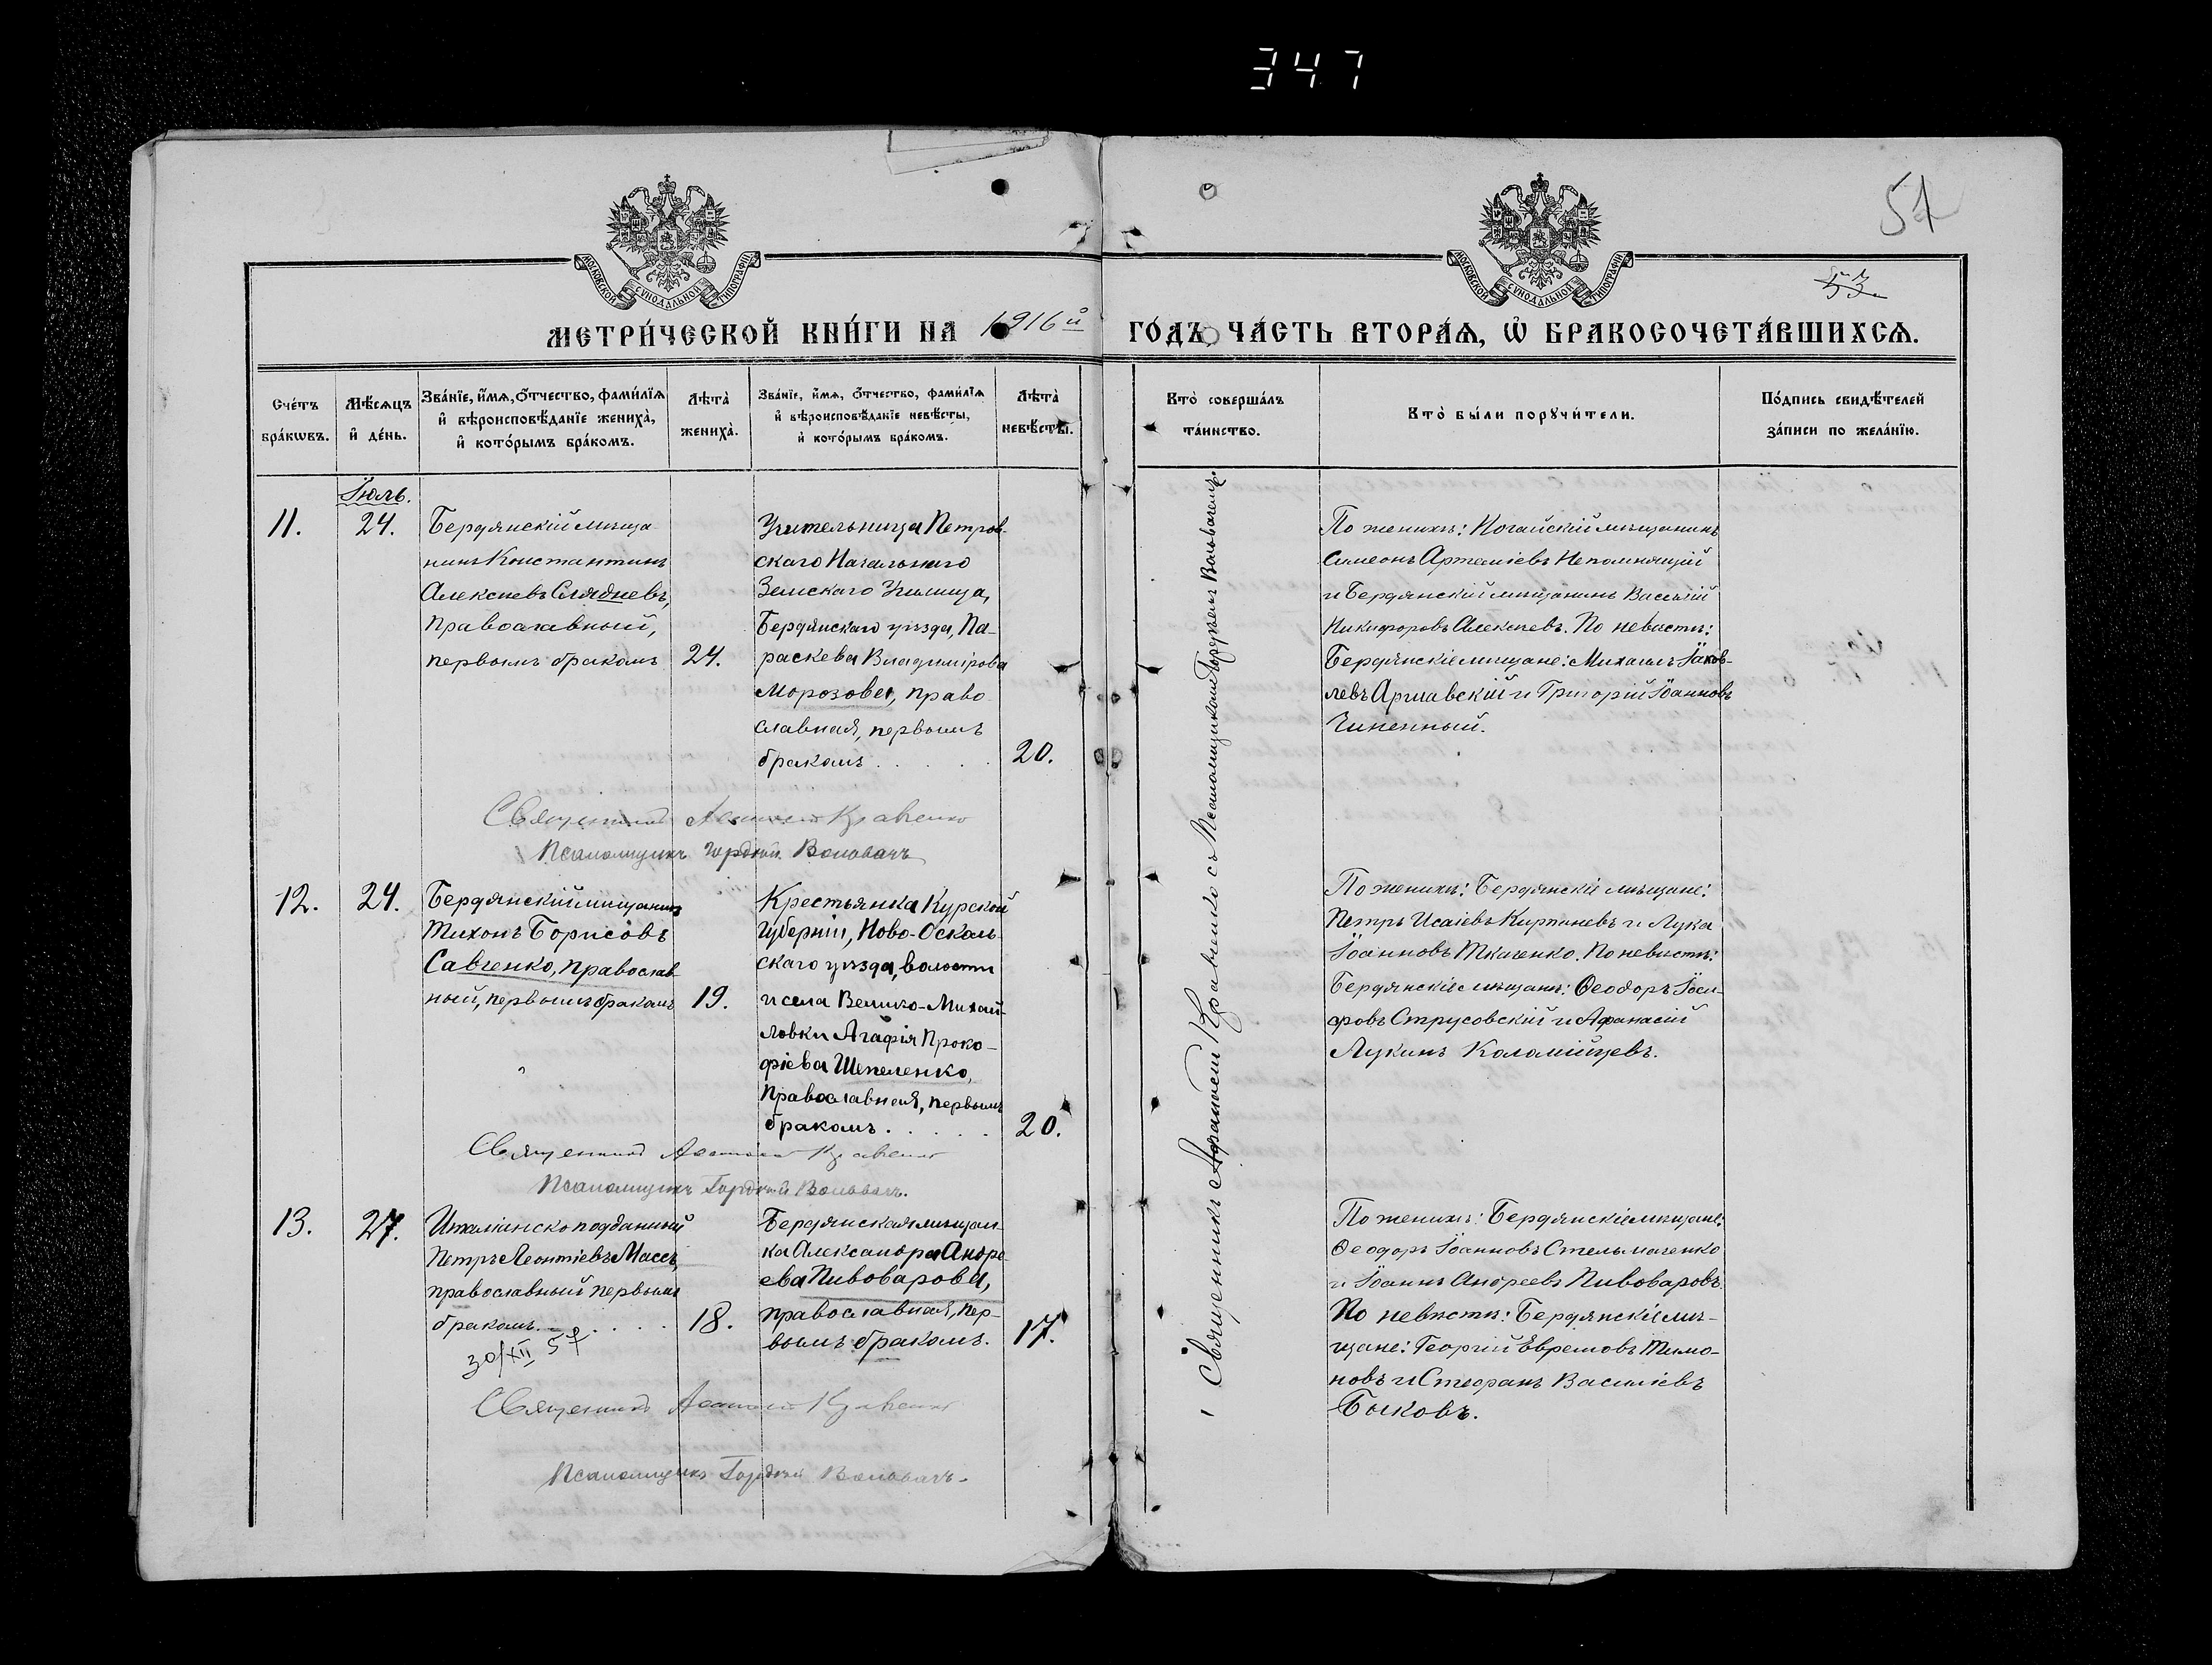 347
51
53.
МОСКОВСКОЙ СѴНОДАЛЬНОЙ ТИПОГРАФІИ
МОСКОВСКОЙ СѴНОДАЛЬНОЙ ТИПОГРАФІИ
МЕТРИ́ЧЕСКОЙ КНИ́ГИ НА 1916й ГО́ДЪ, ЧА́СТЬ ВТОРА́Ѧ, Ѽ БРАКОСОЧЕТА́ВШИХСѦ.
Сче́тъ бра́кѡвъ.
Мѣ́сяцъ и҆ де́нь.
Зва́нїе, и҆́мѧ, ѻ҆́тчество, фами́лїѧ
и҆ вѣроисповѣ́данїе жениха̀,
и҆ кото́рымъ бра́комъ.
Лѣта̀ жениха̀.
Зва́нїе, и҆́мѧ, ѻ҆́тчество, фами́лїѧ
и҆ вѣроисповѣ́данїе невѣ́сты,
и҆ кото́рымъ бра́комъ.
Лѣта̀ невѣ́сты.
Кто̀ соверша́лъ
та́инство.
Кто̀ бы́ли порꙋчи́тели.
По́дпись свидѣ́телей
за́писи по жела́нїю.
Іюль.
11.
24.
Бердянскій мѣща
нинъ Константинъ
Алексѣевъ Слядневъ,
православный,
первымъ бракомъ
24.
Учительница Петров-
скаго Начальнаго
Земскаго Училища,
Бердянскаго уѣзда, Па-
раскева Владимірова
Морозова, право
славная, первымъ
бракомъ . . . . .
20.
По женихѣ: Ногайскій мѣщанинъ
Симеонъ Артеміевъ Непомнящій
и Бердянскій мѣщанинъ Василій
Никифоровъ Алексѣевъ. По невѣстѣ:
Бердянскіе мѣщане: Михаилъ Іаков-
левъ Аршавскій и Григорій Іоанновъ
Чиненный.
Священникъ Афанасій Кравченко
Псаломщикъ Гордій Воловачъ
12.
24.
Бердянскій мѣщанинъ
Тихонъ Борисовъ
Савченко, православ
ный, первымъ бракомъ
19.
Крестьянка Курской
губерніи, Ново-Осколь-
скаго уѣзда, волости
и села Велико-Михай-
ловки Агафія Проко-
фіева Шепеленко,
православная, первымъ
бракомъ . . . . .
20.
По женихѣ: Бердянскіе мѣщане:
Петръ Исаіевъ Кирпиневъ и Лука
Іоанновъ Ткаченко. По невѣстѣ:
Бердянскіе мѣщане: Ѳеодоръ Іоси-
фовъ Струсовскій и Афанасій
Лукинъ Коломійцевъ.
Священникъ Афанасій Кравченко
Псаломщикъ Гордій Воловачъ.
13.
27.
Италіанско подданный
Петръ Леонтіевъ Массъ,
православный первымъ
бракомъ . . . . .
18.
30/XII 57
Бердянская мѣщан-
ка Александра Андре
ева Пивоварова,
православная, пер-
вымъ бракомъ.
17.
По женихѣ: Бердянскіе мѣщане:
Ѳеодоръ Іоанновъ Стельмаченко
и Іоаннъ Андреевъ Пивоваровъ.
По невѣстѣ: Бердянскіе мѣ-
щане: Георгій Евремовъ Тимо-
новъ и Стефанъ Василіевъ
Быковъ.
Священникъ Афанасій Кравченко
Псаломщикъ Гордій Воловачъ.
Священникъ Афанасій Кравченко съ Псаломщикомъ Гордіемъ Воловачемъ.